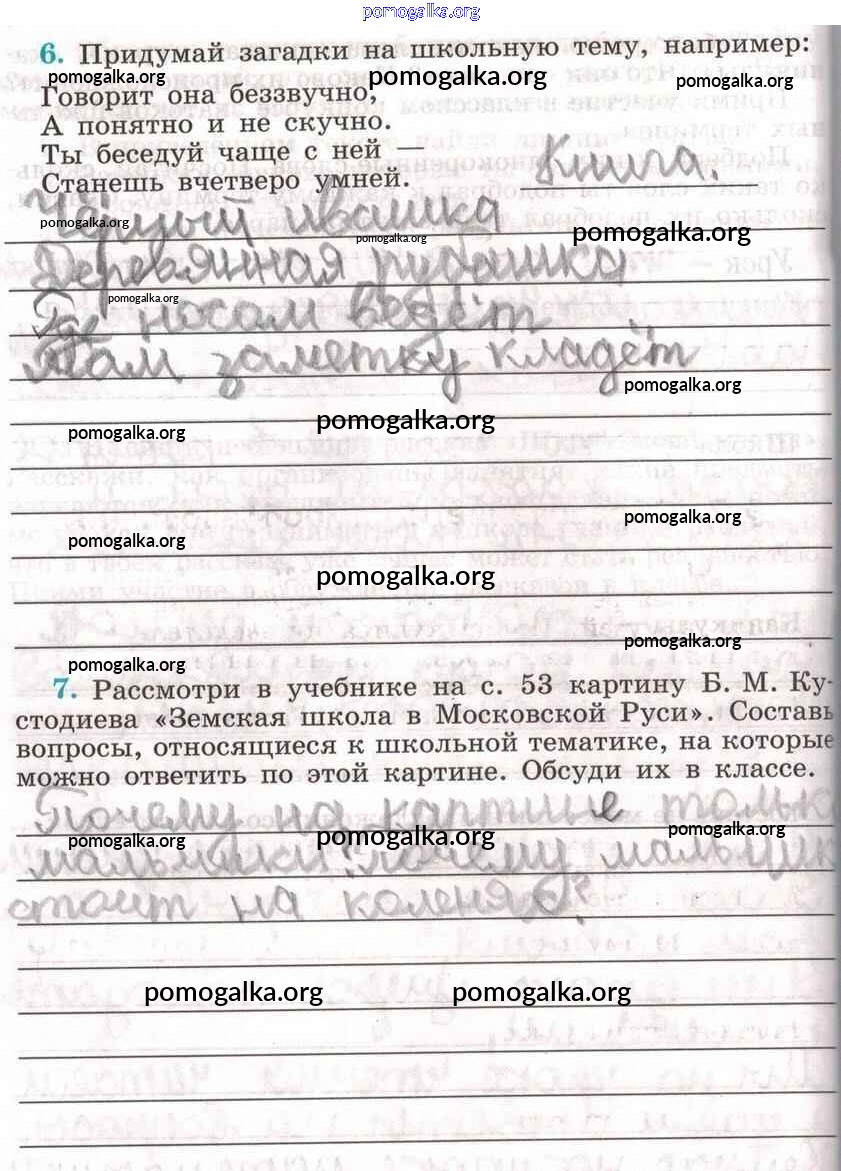 pomogalka.org
6. Придумай загадки на школьную тему, например:
pomogalka.org pomogalka.org pomogalka.org
Говорит она беззвучно,
А понятно и не скучно.
Ты беседуй чаще с ней —
Станешь вчетверо умней. Книга.
Чёрный ивашка
pomogalka.org pomogalka.org pomogalka.org
Деревянная рубашка
pomogalka.org
Где носом ведёт
Там заметку кладёт
pomogalka.org
pomogalka.org pomogalka.org
pomogalka.org
pomogalka.org pomogalka.org
pomogalka.org
pomogalka.org
7. Рассмотри в учебнике на с. 53 картину Б. М. Ку-
стодиева «Земская школа в Московской Руси». Составь
вопросы, относящиеся к школьной тематике, на которые
можно ответить по этой картине. Обсуди их в классе.
Почему на картине тольк
pomogalka.org pomogalka.org pomogalka.org
мальчики? почему мальчик
стоит на коленях?
pomogalka.org pomogalka.org